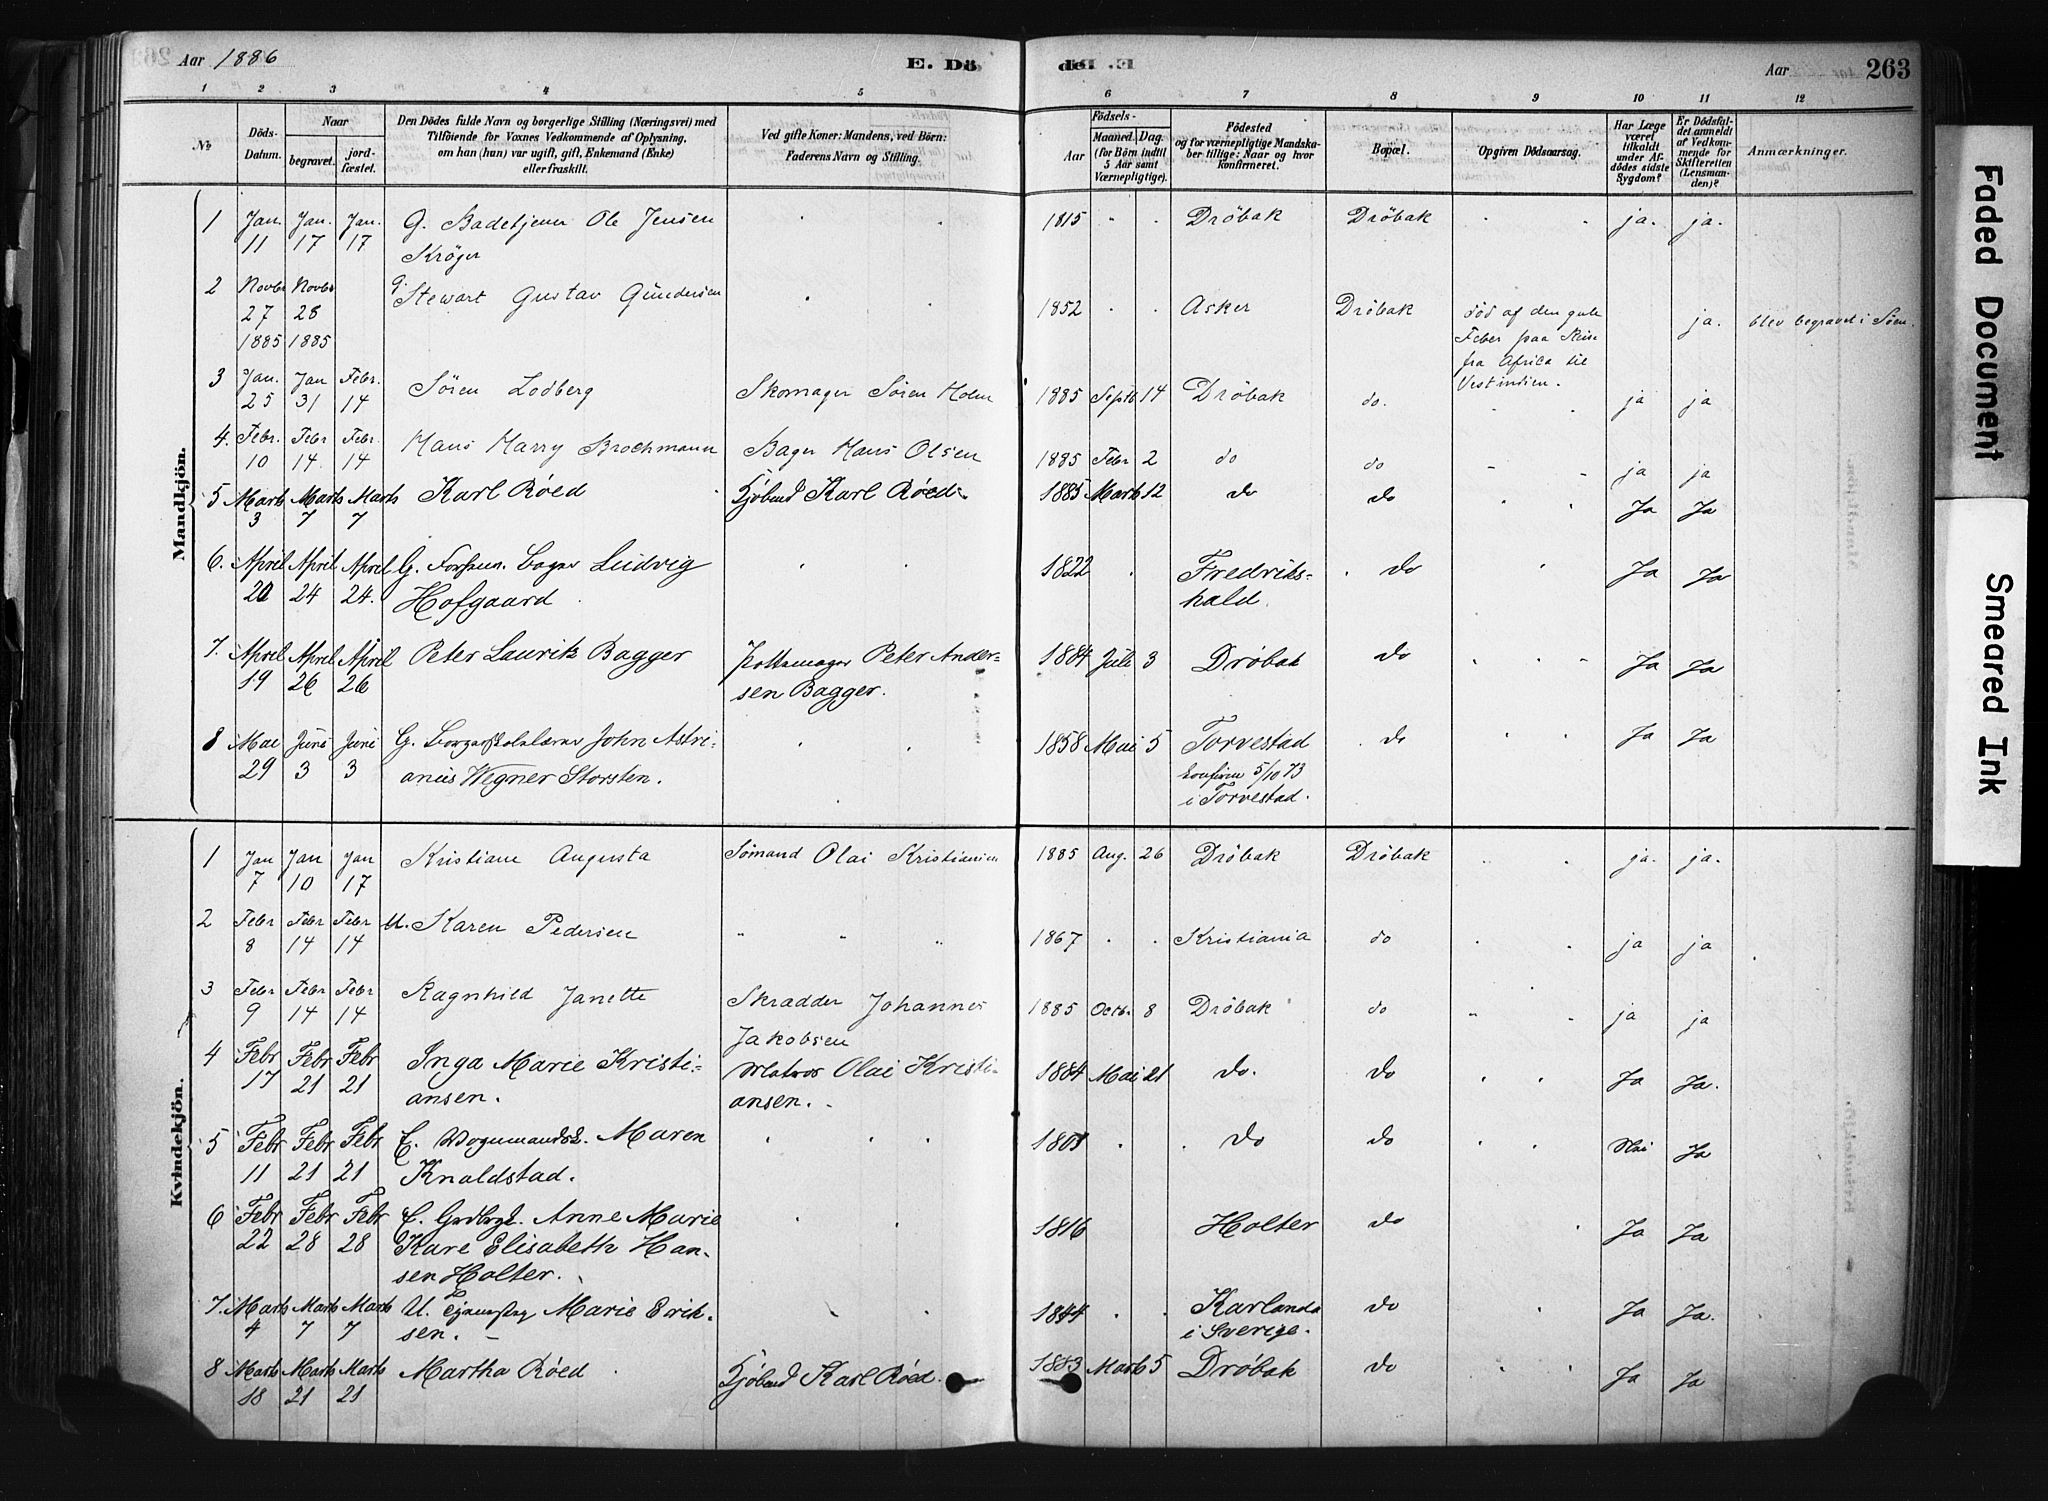 Aar 1886 E. Dö de E. Aar 263
1 2 3 4 5 6 7 8 9 10 11 12
№ Döds-Datum. Naar begravet. jordfæstet. Den Dödes fulde Navn og borgerlige Stilling (Næringsvei) med Tilföiende for Voxnes Vedkommende af Oplysning, om han (hun) var ugift, gift, Enkemand (Enke) eller fraskilt. Ved gifte Koner: Mandens, ved Börn: Faderens Navn og Stilling. Födsels- Aar Maaned. Dag. (for Börn indtil 5 Aar samt Værnepligtige). Födested og for værnepligtige Mandskaber tillige: Naar og hvor konfirmeret. Bopæl. Opgiven Dödsaarsag. Har Læge været tilkaldt under Afdödes sidste Sygdom? Er Dödsfaldet anmeldt af Vedkommende for Skifteretten (Lensmanden)? Anmærkninger.
Mandkjön.
1 Jan. Jan. Jan. G. Badetjener Ole Jensen 1815 Dröbak Dröbak ja. ja.
11 17 17 Kröger
2 Novbr Novbr G. Stewart Gustav Gundersen 1852 Asker Dröbak död af den gule ja. blev begravet i Söen.
27 28 Feber paa Reise
1885 1885 fra Africa til
Vestindien.
3 Jan. Jan Febr. Sören Lodberg Skomager Sören Holm 1885 Septb 14 Dröbak do. ja ja
25 31 14
4. Febr. Febr Febr. Hans Harry Brochmann Bager Hans Olsen 1885 Febr 2 do do ja ja
10 14. 14
5 Marts Marts Marts Karl Röed Kjöbmd Karl Röed. 1885 Marts 12 do do Ja Ja
3 7 7
6. April April April G. Bager Ludvig 1822 Fredriks- do Ja Ja
20 24 24. Hofgaard hald.
7. April April April Peter Laurits Bagger Pottemager Peter Ander- 1884 Juli 3 Dröbak do Ja Ja
19 26 26 sen Bagger.
8 Mai Juni Juni G. Borgerskolelærer John Astri- 1858 Mai 5 Torvestad do Ja Ja
29 3 3 anus Wegner Storsten. konfirm 5/10 73
i Torvestad.
Kvindekjön.
1 Jan Jan Jan Kristiane Augusta Sömand Olai Kristiansen 1885 Aug. 26 Dröbak Dröbak ja. ja.
7 10 17
2 Febr Febr Febr U. Karen Pedersen " " " 1867 Kristiania do ja ja
8 14 14
3 Febr Febr Febr Ragnhild Janette Skrædder Johannes 1885 Octb. 8 Dröbak do ja ja
9 14 14 Jakobsen
4 Febr Febr Febr Inga Marie Kristi- Matros Olai Kristi- 1884 Mai 21 do. do Ja Ja.
17 21 21 ansen. ansen.
5 Febr Febr Febr E. Maren do do Nei Ja
11 21 21 Knaldstad.
6 Febr Febr Febr E. Anne Marie 1816 Holter do Ja Ja
22 28 28 Kare Elisabeth Han-
sen Holter.
7. Marts Marts Marts U. Marie Erik- 1844 Karlanda do Ja Ja.
4 7 7 sen. i Sverige.
8 Marts Marts Marts Martha Röed Kjöbmd Karl Röed. 1883 Marts 5 Dröbak do Ja Ja
18 21 21
Faded Document
Smeared Ink